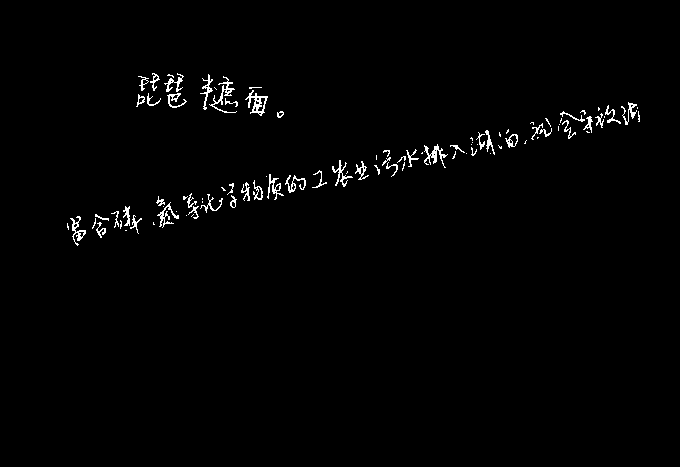 琵琶半遮面。
富含磷、氮等化学物质的工农业污水排入湖泊，就会导致湖